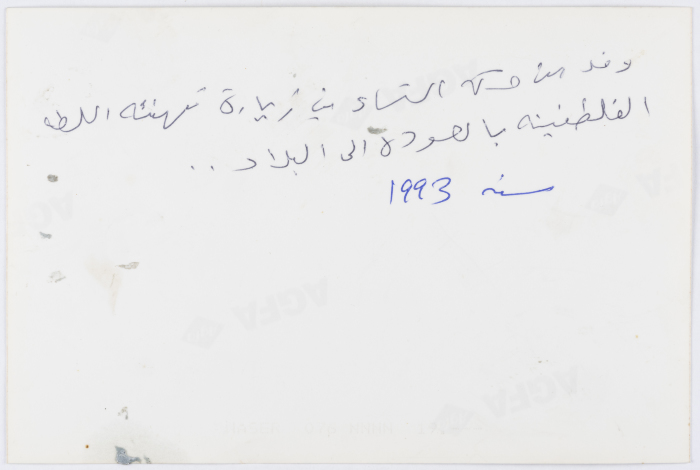 وفد من حركة النساء في زيارة تهنئة السلطة
الفلسطينية بالعودة الى البلاد ..
سنة 1993
AGFA
AGFA
AGFA